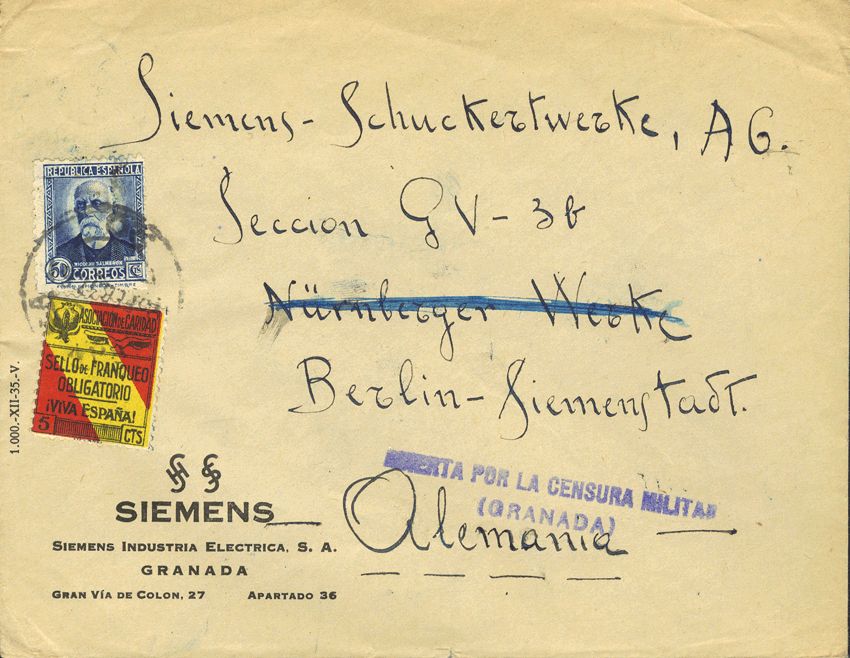 Siemens-Schuckertwerke, AG.
Sección GV-3b
Nürnberger Werke
Berlin-Siemensstadt.
Alemania
REPUBLICA ESPAÑOLA
NICOLAS SALMERON
50 CORREOS CTS
ASOCIACION DE CARIDAD
SELLO DE FRANQUEO
OBLIGATORIO
¡VIVA ESPAÑA!
5 CTS
1.000.-XII-35.-V.
ABIERTA POR LA CENSURA MILITAR
(GRANADA)
SIEMENS
SIEMENS INDUSTRIA ELECTRICA, S. A.
GRANADA
GRAN VÍA DE COLON, 27 APARTADO 36